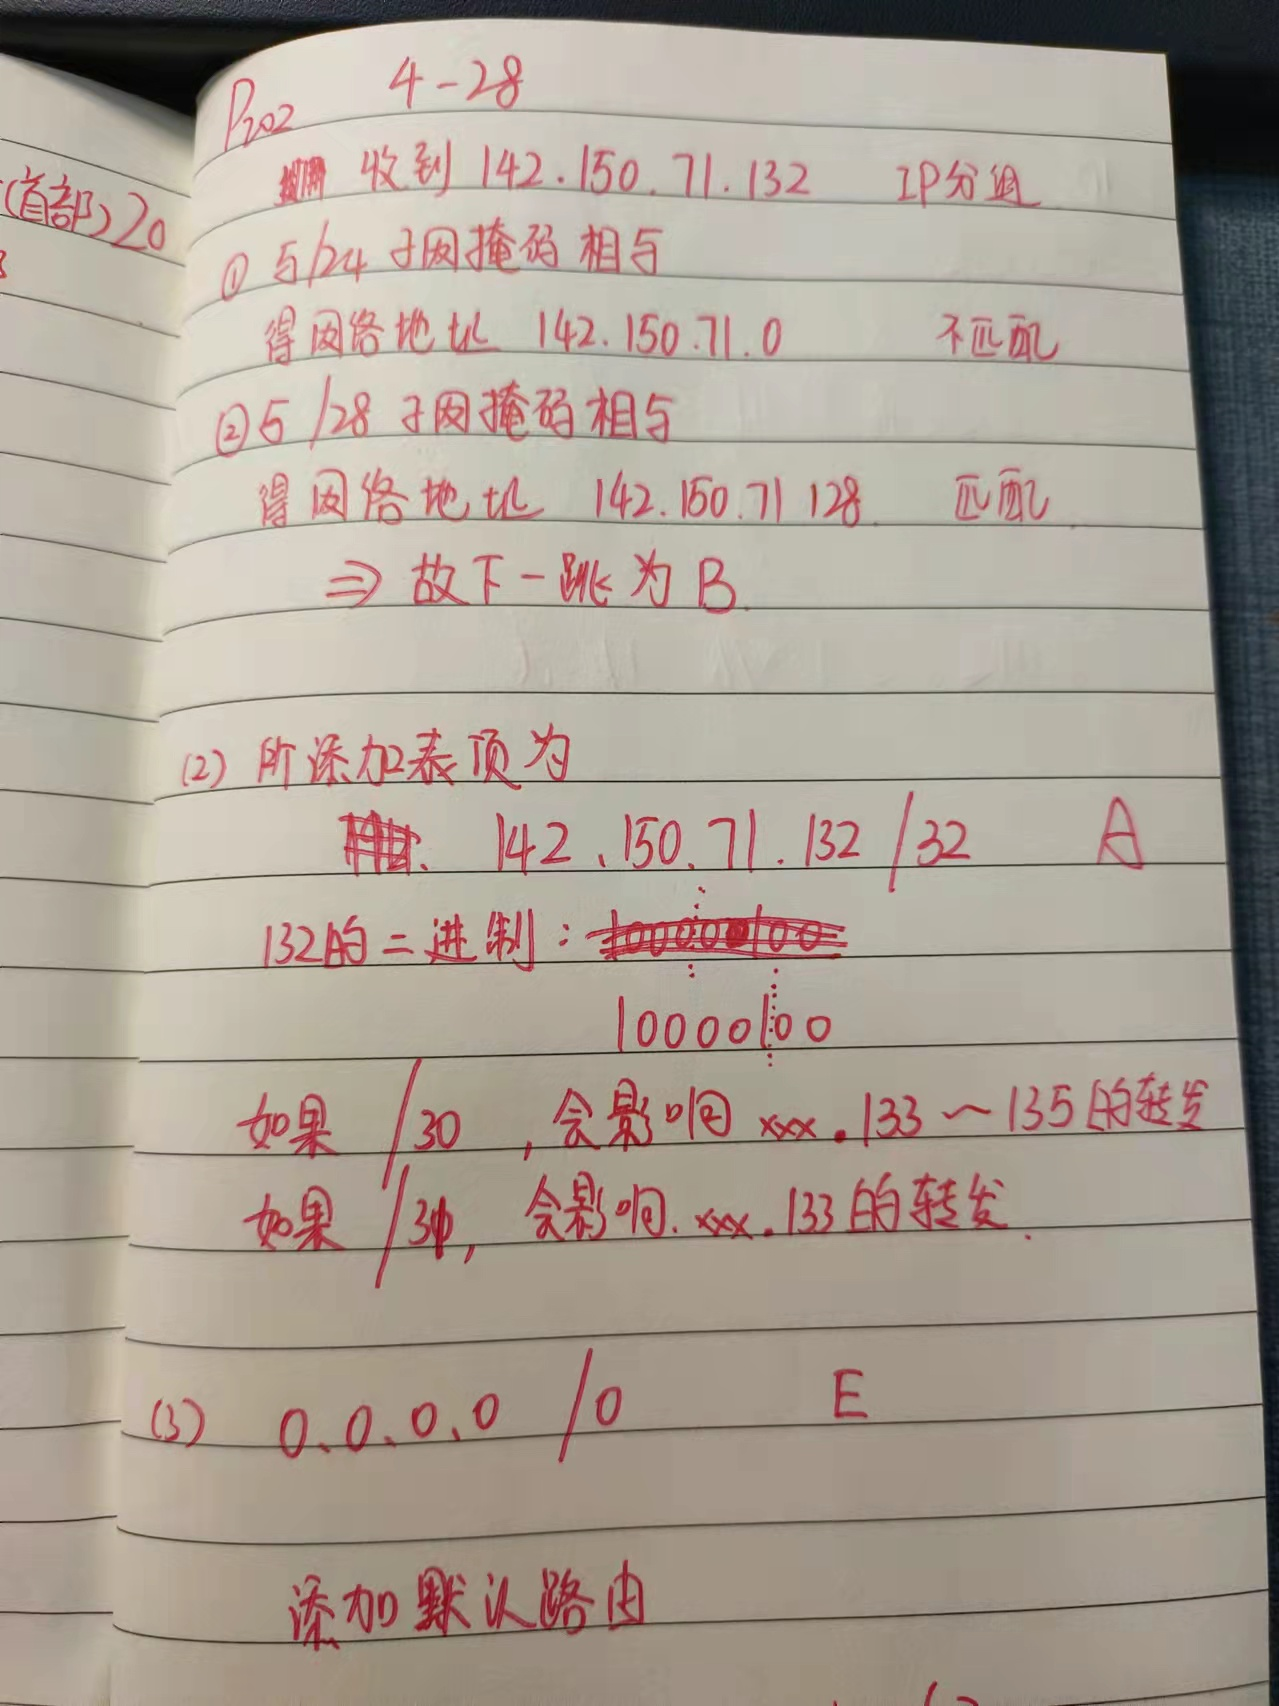 (首部)20
P202 4-28
收到 142.150.71.132 IP分组
① 与/24 子网掩码相与
得网络地址 142.150.71.0 不匹配
② 与 /28 子网掩码相与
得网络地址 142.150.71 128 匹配
⇒ 故下一跳为 B.
(2) 所添加表项为
142.150.71.132 /32 A
132的二进制:
10000100
如果 /30 , 会影响 xxx.133～135的转发
如果 /31, 会影响.xxx.133的转发.
(3) 0.0.0.0 /0 E
添加默认路由